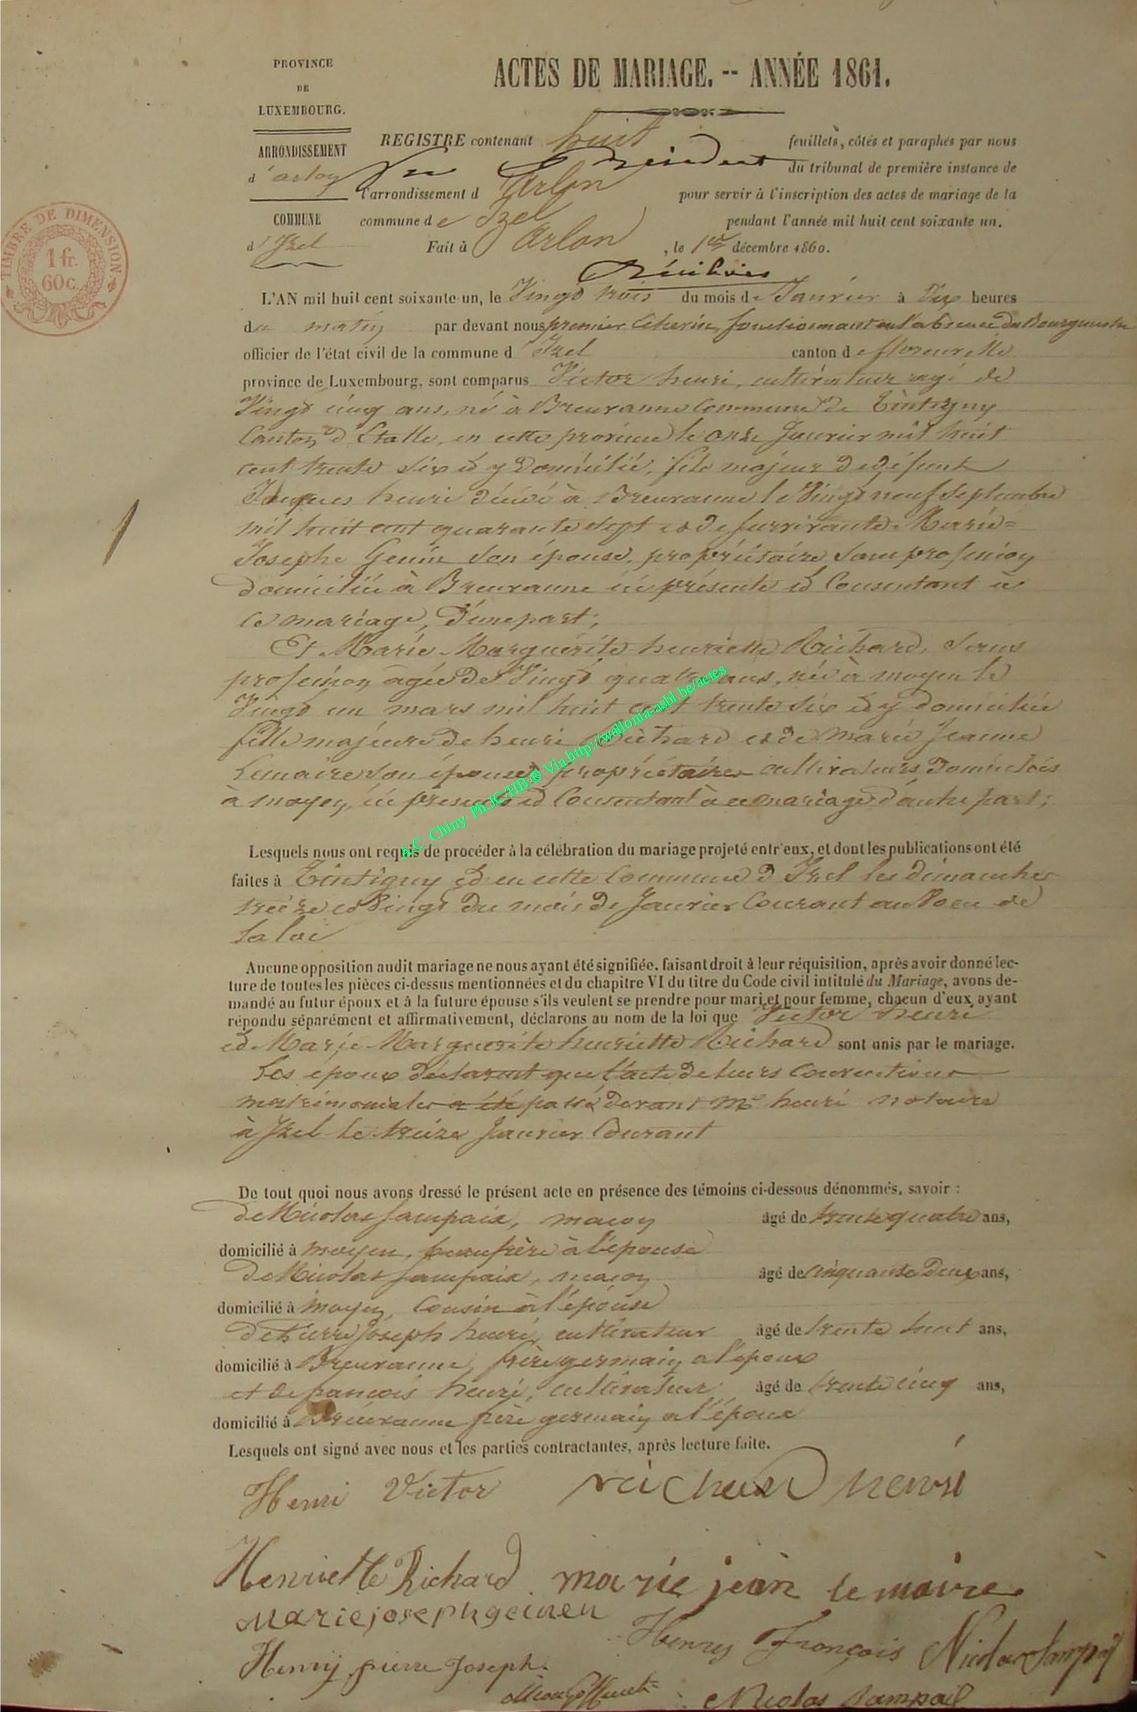 PROVINCE
DE
LUXEMBOURG.
ARRONDISSEMENT
d'arlon
COMMUNE
d'Izel
TIMBRE DE DIMENSION
1 fr.
60c.
ACTES DE MARIAGE. -- ANNÉE 1861.
REGISTRE contenant huit feuillets, côtés et paraphés par nous
Président du tribunal de première instance de
l'arrondissement d'Arlon pour servir à l'inscription des actes de mariage de la
commune de Izel pendant l'année mil huit cent soixante un.
Fait à Arlon, le 1er décembre 1860.
L'AN mil huit cent soixante-un, le Vingt trois du mois de Janvier à Dix heures
du matin par devant nous premier Echevin, fonctionnant en l'absence du Bourgmestre
officier de l'état civil de la commune d'Izel canton de florenville
province de Luxembourg, sont comparus Victor henri, cultivateur agé de
Vingt cinq ans, né à Breuvanne Commune de Tintigny
Canton d'Etalle, en cette province le onze Janvier mil huit
cent trente six et y Domicilié, fils majeur de défunt
Jacques henri décédé à Breuvanne le Vingt neuf Septembre
mil huit cent quarante sept et de survivante Marie=
Josephe Genin son épouse, propriétaire sans profession
domiciliée à Breuvanne ici présente et Consentant à
ce mariage, D'une part;
Et Marie Marguérite henriette Richard, Sans
profession agée de Vingt quatre ans, née à moyen le
Vingt un mars mil huit cent trente six et y domiciliée
fille majeure de henri Richard et de marie Jeanne
Lemaire son épouse, propriétaires cultivateurs Domiciliés
à moyen, ici présents et Consentant à ce mariage d'autre part;
A.C. Chiny Ph JC HB @ Via http://wallonia-asbl.be/actes
Lesquels nous ont requis de procéder à la célébration du mariage projeté entr'eux, et dont les publications ont été
faites à Tintigny et en cette Commune d'Izel les dimanches
treize et Vingt du mois de Janvier Courant au Voeu de
la loi
Aucune opposition audit mariage ne nous ayant été signifiée. faisant droit à leur réquisition, après avoir donné lec-
ture de toutes les pièces ci-dessus mentionnées et du chapitre VI du titre du Code civil intitulé du Mariage, avons de-
mandé au futur époux et à la future épouse s'ils veulent se prendre pour mari et pour femme, chacun d'eux ayant
répondu séparément et affirmativement, déclarons au nom de la loi que Victor henri
et Marie Marguerite henriette Richard sont unis par le mariage.
Les époux déclarent que l'acte de leurs Conventions
matrimoniales a été passé devant Me henri notaire
à Izel le treize Janvier Courant
De tout quoi nous avons dressé le présent acte en présence des témoins ci-dessous dénommés, savoir :
de Nicolas Jampaix, maçon âgé de trente quatre ans,
domicilié à moyen, beaufrère à l'épouse
De Nicolas Jampaix, maçon âgé de cinquante Deux ans,
domicilié à moyen, Cousin à l'épouse
de Pierre Joseph henri, cultivateur âgé de trente huit ans,
domicilié à Breuvanne, frère germain a l'époux
et de françois henri, cultivateur âgé de trente cinq ans,
domicilié à Breuvanne frère germain a l'époux
Lesquels ont signé avec nous et les parties contractantes, après lecture faite.
Henri Victor richard henri
Henriette Richard marie jean lemaire
Marie joseph
Henry François Nicolas Jampaix
Henry pierre Joseph.
Nicolas Jampaix